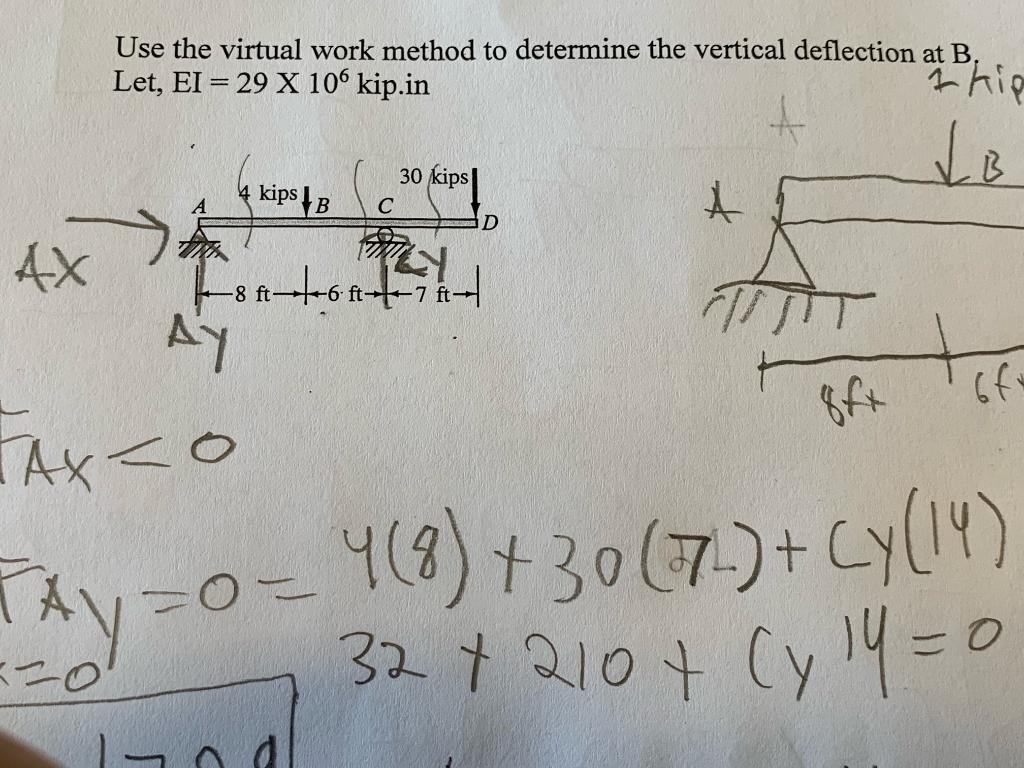 Use the virtual work method to determine the vertical deflection at B.
Let, EI = 29 X 10⁶ kip.in
1 kip
A
B
A
4 kips
B
C
30 kips
D
AX
CY
8 ft
6 ft
7 ft
AY
8ft
6f
FAX < 0
FAy = 0 = 4(8) + 30(7) + Cy(14)
32 + 210 + Cy 14 = 0
=0